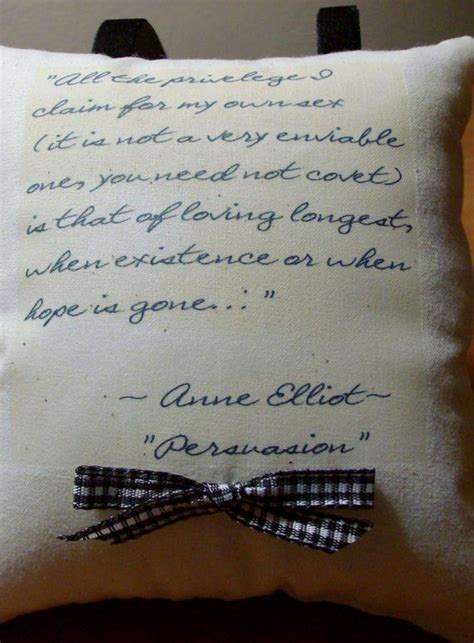 "All the privelege I
claim for my own sex
(it is not a very enviable
one, you need not covet)
is that of loving longest,
when existence or when
hope is gone..."
~ Anne Elliot ~
"Persuasion"